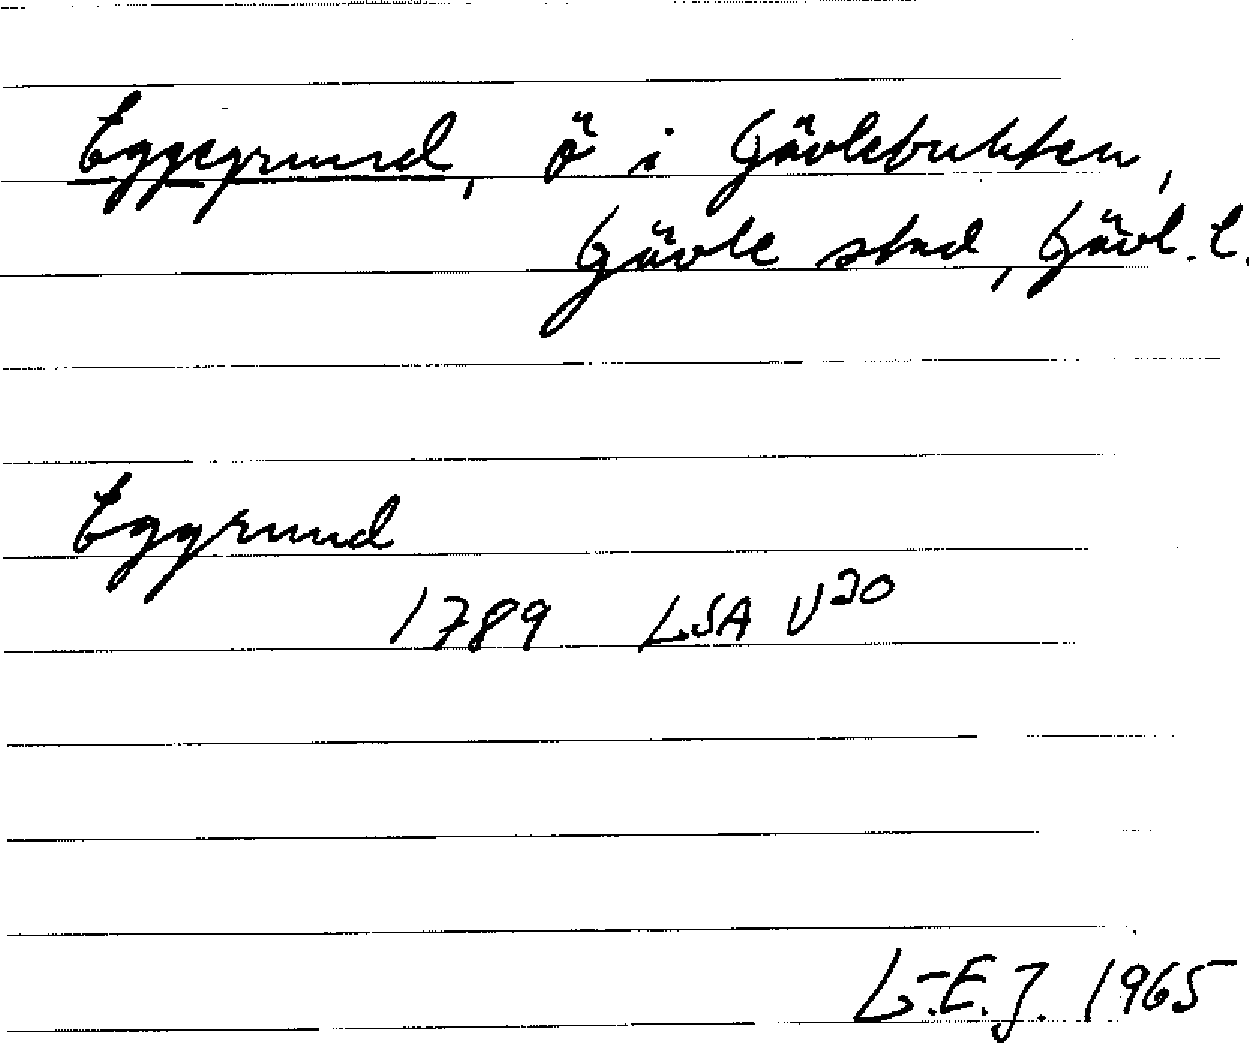 Eggegrund, ö i Gävlebukten,
Gävle stad, Gävl. l.
Eggrund
1789 LSA U20
L.E.J. 1965